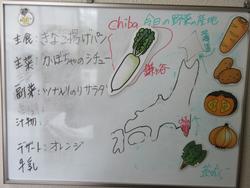 chiba 今日の野菜の産地
主食:きなこ揚げパン
主菜:かぼちゃのシチュー
副菜:ツナいりのりサラダ
汁物:
デザート:オレンジ
牛乳
鎌ケ谷